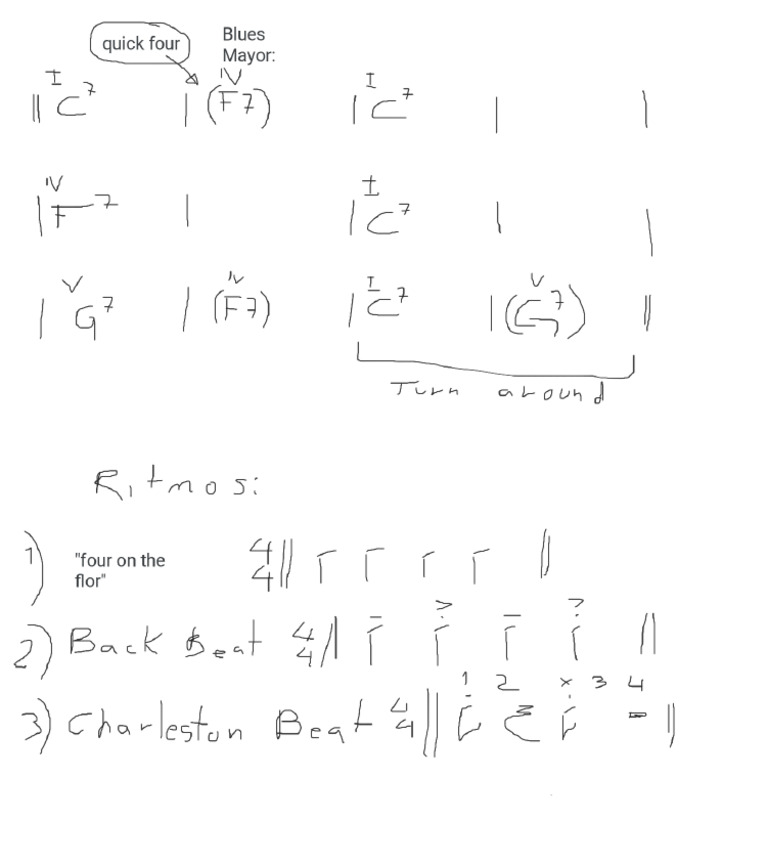 quick four
Blues
Mayor:
I IV I
‖ C7 | (F7) | C7 | |
IV I
| F7 | | C7 | |
V IV I V
| G7 | (F7) | C7 | (G7) ‖
Turn around
Ritmos:
1) "four on the
flor" 4/4
2) Back Beat 4/4 > >
1 2 x 3 4
3) Charleston Beat 4/4